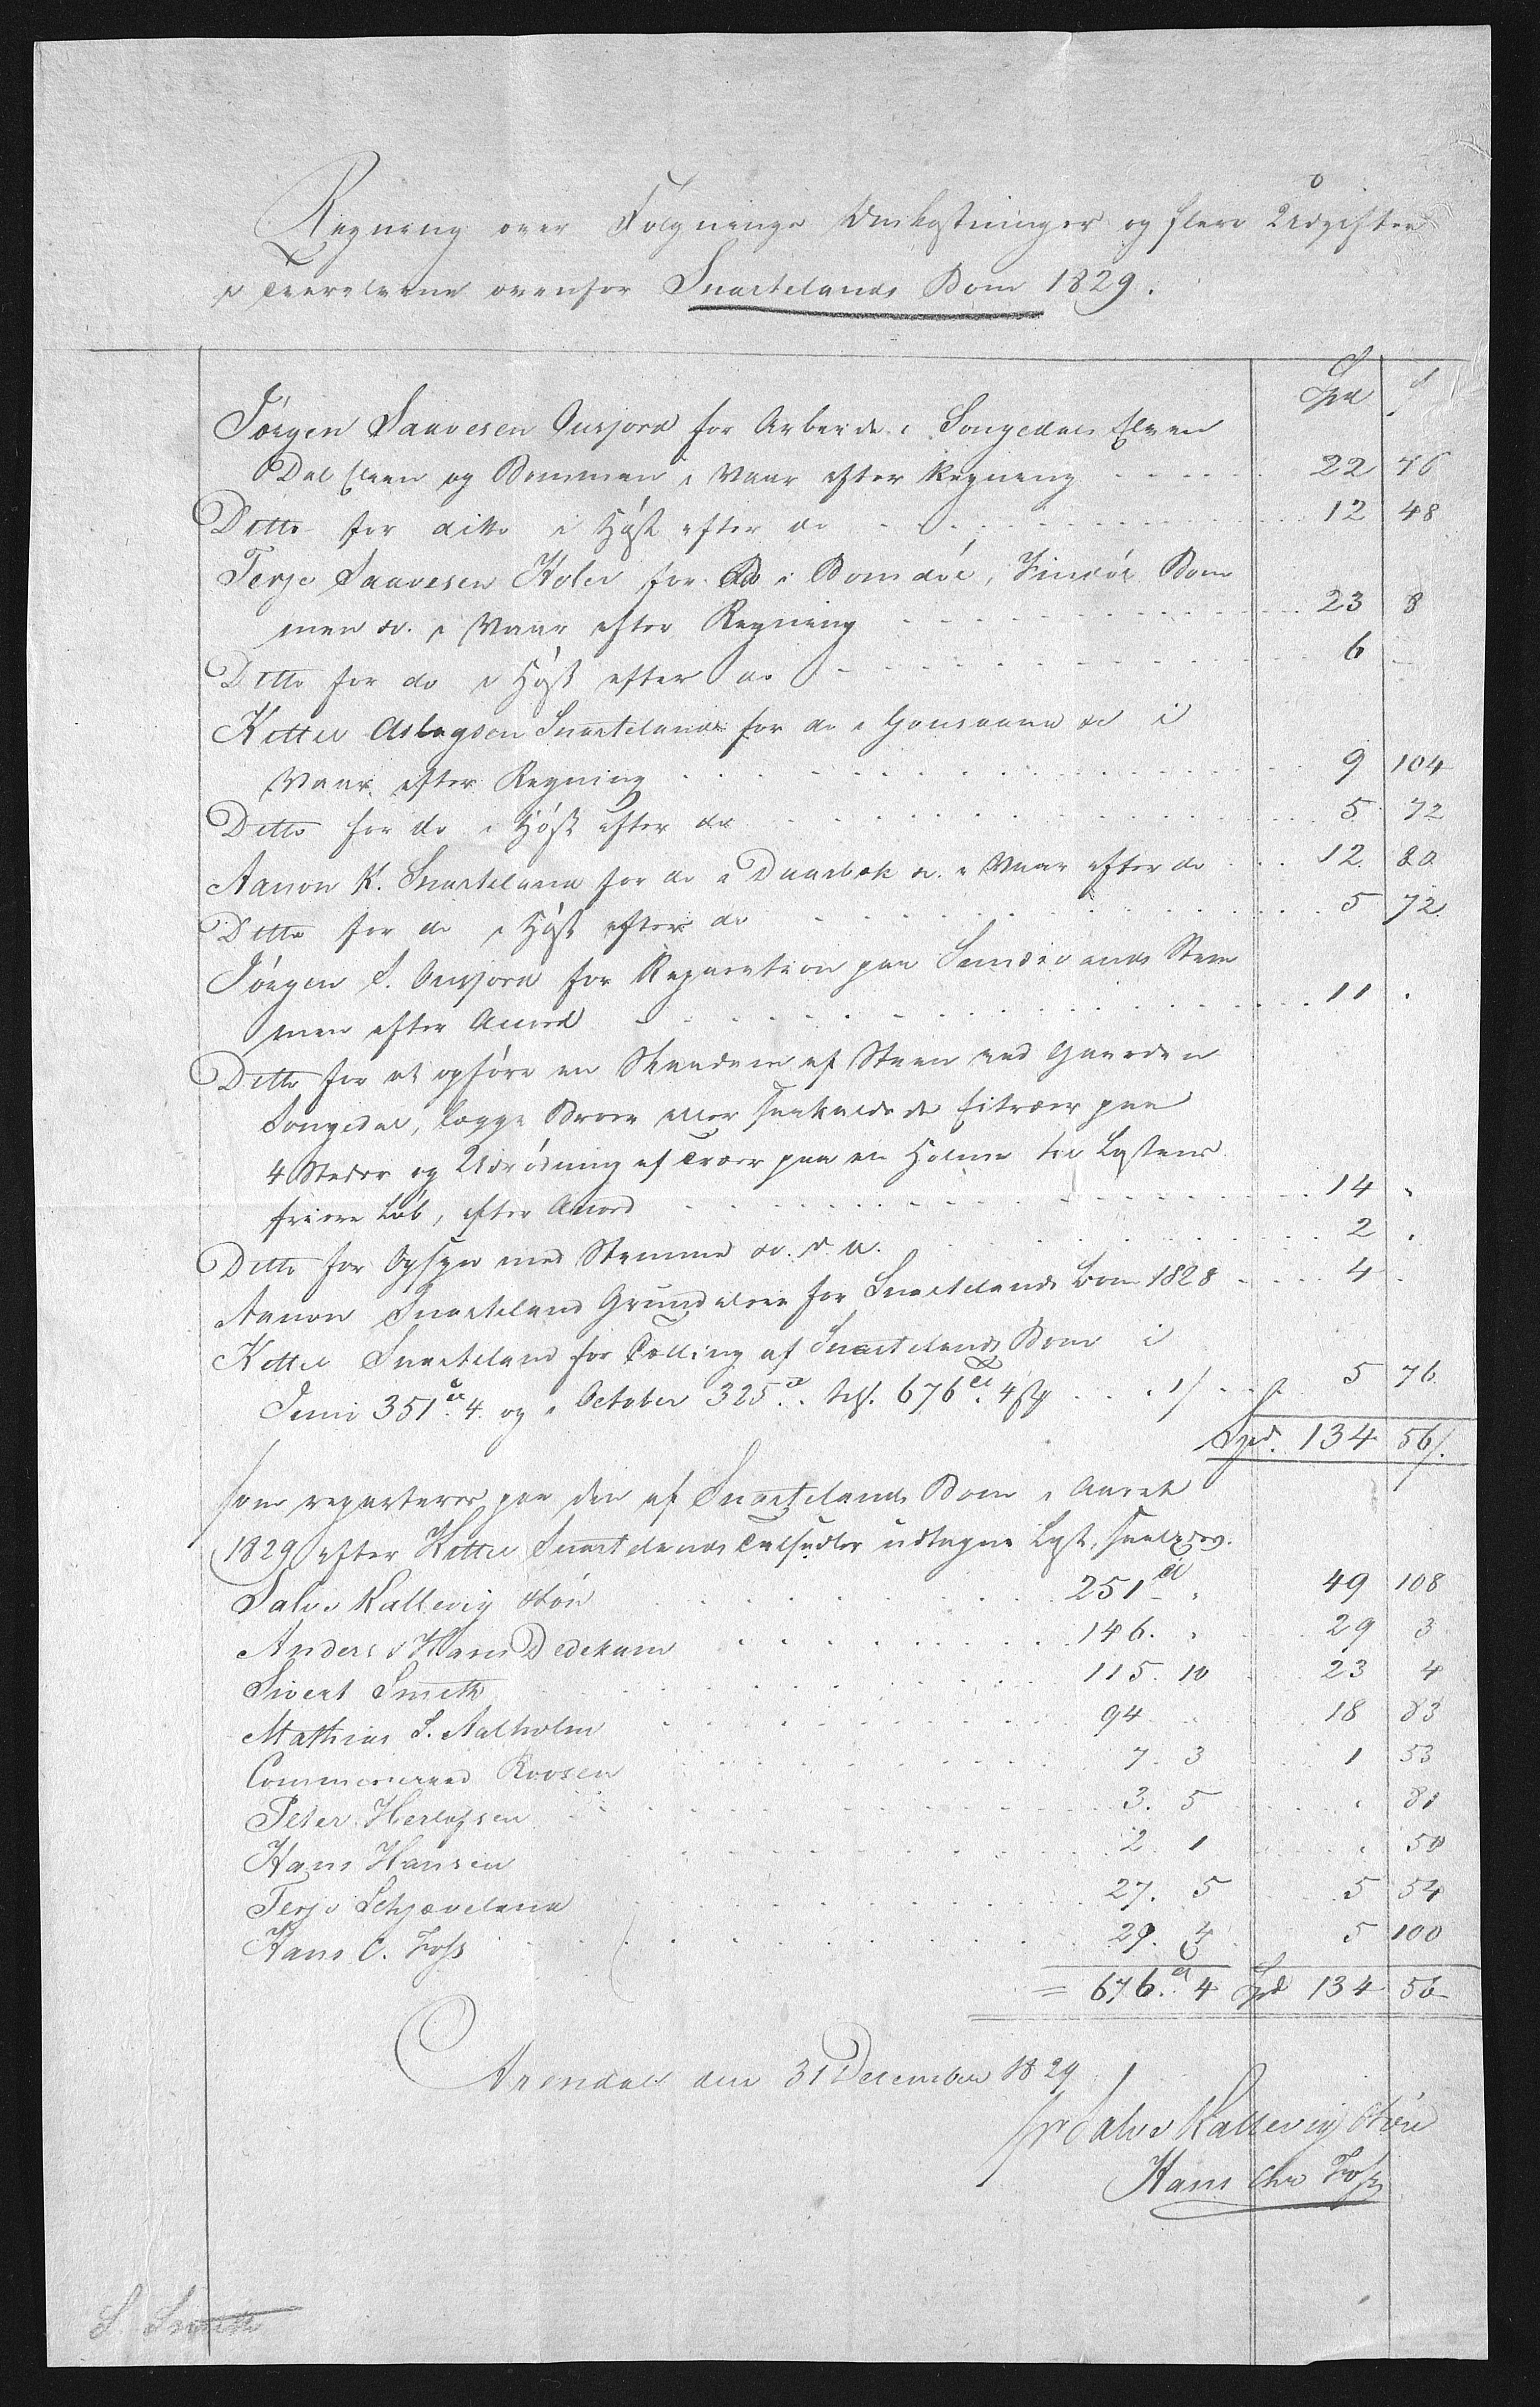 Regning over Følgnings Omkostninger og flere Udgifter
i Tverelvene ovenfor Svartelands Bom 1829.
Spd s
Jørgen Saavesen Ousjord for Arbeide i Songedals Elven
Dal Elven og Bommen i Vaar efter Regning 22 46
Ditto for ditto i Høst efter do 12 48
Terje Saavesen Holen for do i Bomdøl, Bom
men &c. i Vaar efter Regning 23 8
Ditto for do i Høst efter do 6
Kettel Aslagsen Svarteland for do i &c i
Vaar efter Regning 9 104
Ditto for do i Høst efter do 5 72
Aanon K. Svarteland for do i Daarbek &c. i Vaar efter do 12 80
Ditto for do i Høst efter do 5 72
Jørgen S. Ousjord for Reparation paa Stem
men efter Accord 11 "
Ditto for at opføre en af Steen ved Gaarden
Songedal, lægge Broer eller saakaldede paa
4 Steder og Udrødning af Træer paa en Holme til Lastens
friere Løb, efter Accord 14 "
Ditto for Opsyn med Stemme &c. 2 "
Aanon Svarteland Grundleie for Svartelands Bom 1828 4 "
Kettel Svarteland for Tælling af Svartelands Bom i
Juni 351 4 og i October 325 tils. 676 4 5 76
Spd. 134 56
som reparteres paa den af Svartelands Bom i Aaret
1829 efter Kettel Svartelands Talsedler udtagne Last, saaledes.
Salve Kallevig &Søn 251 " 49 108
Anders & Hans Dedekam 146. " 29 3
Sivert Smith 115. 10 23 4
Mathias S. Aalholm 94 18 83
Commerceraad Roosen 7. 3 1 53
Peter Herlofsen 3. 5 " 81
Hans Hansen 2. 1 " 50
Terje Schjeveland 27. 5 5 54
Hans C. Foss 29. 4 5 100
= 676. 4 Spd 134 56
Arendal den 31 December 1829
pr Salve Kallevig &Søn
Hans Chr Foss
S. Smith